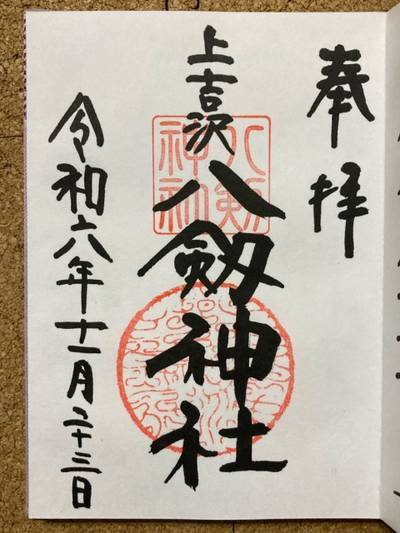 奉拝
上吉沢
八剱神社
八剱神社
令和六年十一月二十三日